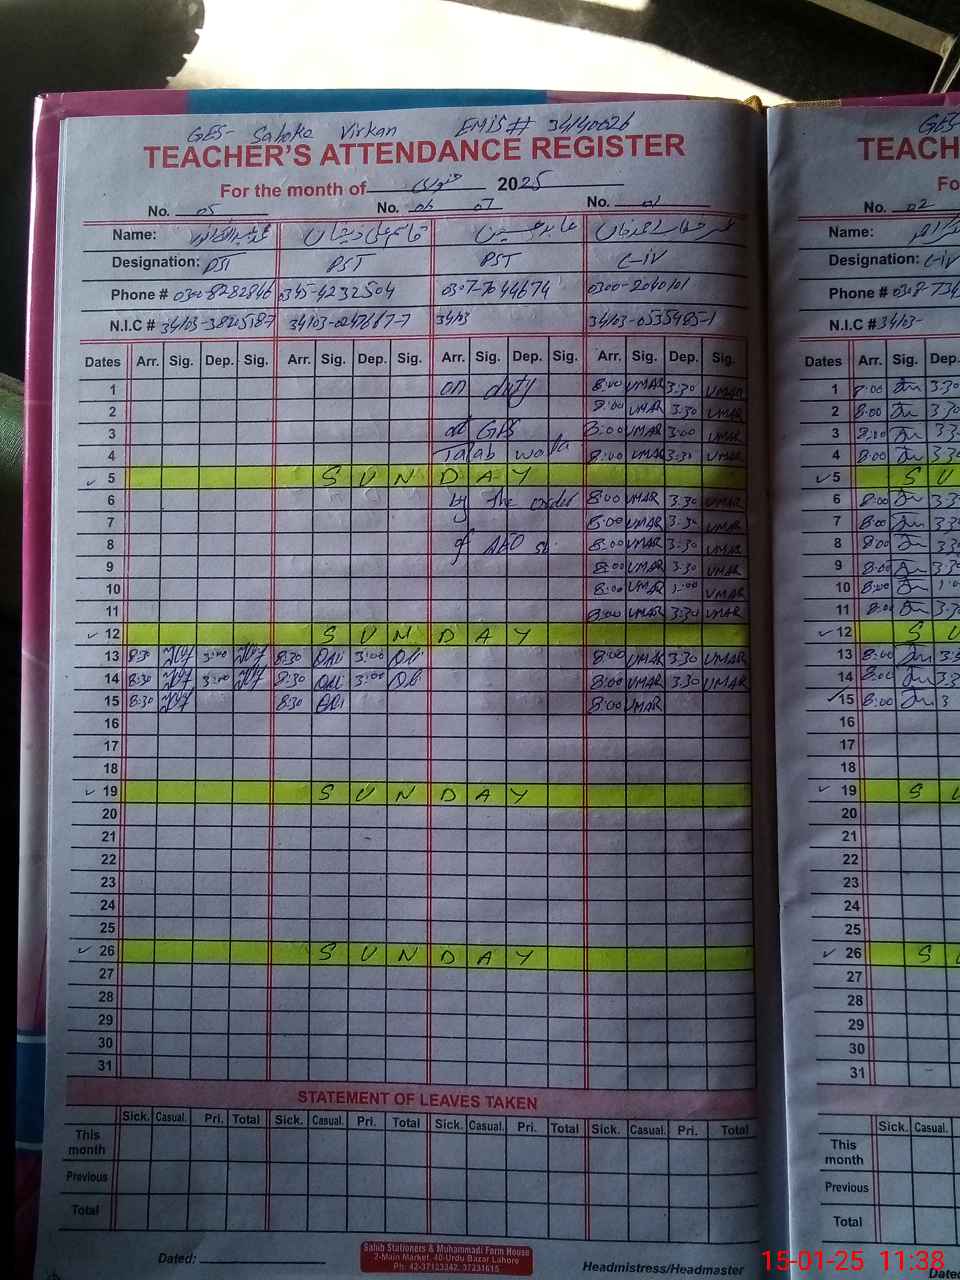 GES- Sahoke Virkan EMIS # 34140026
TEACHER'S ATTENDANCE REGISTER
For the month of جنوری 2025
No. 05 No. 06 07 No. 01
Name:
Designation: PST PST PST C-IV
Phone # 0300-8282846 0345-4232504 0307-7044674 0300-2040101
N.I.C # 34103-3820518-7 34103-0247667-7 34103 34103-0535485-1
Dates Arr. Sig. Dep. Sig. Arr. Sig. Dep. Sig. Arr. Sig. Dep. Sig. Arr. Sig. Dep. Sig.
1 on duty 8:00 UMAR 3:30 UMAR
2 8:00 UMAR 3:30 UMAR
3 at GPS 8:00 UMAR 3:00 UMAR
4 Talab wala 8:00 UMAR 3:30 UMAR
5 S U N D A Y
6 by the order 8:00 UMAR 3:30 UMAR
7 8:00 UMAR 3:30 UMAR
8 of AEO 8:00 UMAR 3:30 UMAR
9 8:00 UMAR 3:30 UMAR
10 8:00 UMAR 1:00 UMAR
11 8:00 UMAR 3:30 UMAR
12 S U N D A Y
13 8:30 3:00 8:30 3:00 8:00 UMAR 3:30 UMAR
14 8:30 3:00 8:30 3:00 8:00 UMAR 3:30 UMAR
15 8:30 8:30 8:00 UMAR
16
17
18
19 S U N D A Y
20
21
22
23
24
25
26 S U N D A Y
27
28
29
30
31
STATEMENT OF LEAVES TAKEN
Sick. Casual. Pri. Total Sick. Casual. Pri. Total Sick. Casual. Pri. Total Sick. Casual. Pri. Total
This month
Previous
Total
Dated:
Sahib Stationers & Muhammadi Farm House
2-Main Market, 40-Urdu Bazar Lahore
Ph: 42-37123342, 37231615
Headmistress/Headmaster
GES-
TEACH
Fo
No. 02
Name:
Designation: C-IV
Phone # 0308-734
N.I.C # 34103-
Dates Arr. Sig. Dep.
1 8:00 3:30
2 8:00 3:30
3 8:00 3:3
4 8:00 3:30
5 S U
6 8:00 3:3
7 8:00 3:30
8 8:00 3:30
9 8:00 3:30
10 8:00 1:0
11 8:00 3:3
12 S U
13 8:00 3:3
14 8:00 3:3
15 8:00 3
16
17
18
19 S U
20
21
22
23
24
25
26 S U
27
28
29
30
31
Sick. Casual.
This month
Previous
Total
Date
15-01-25 11:38